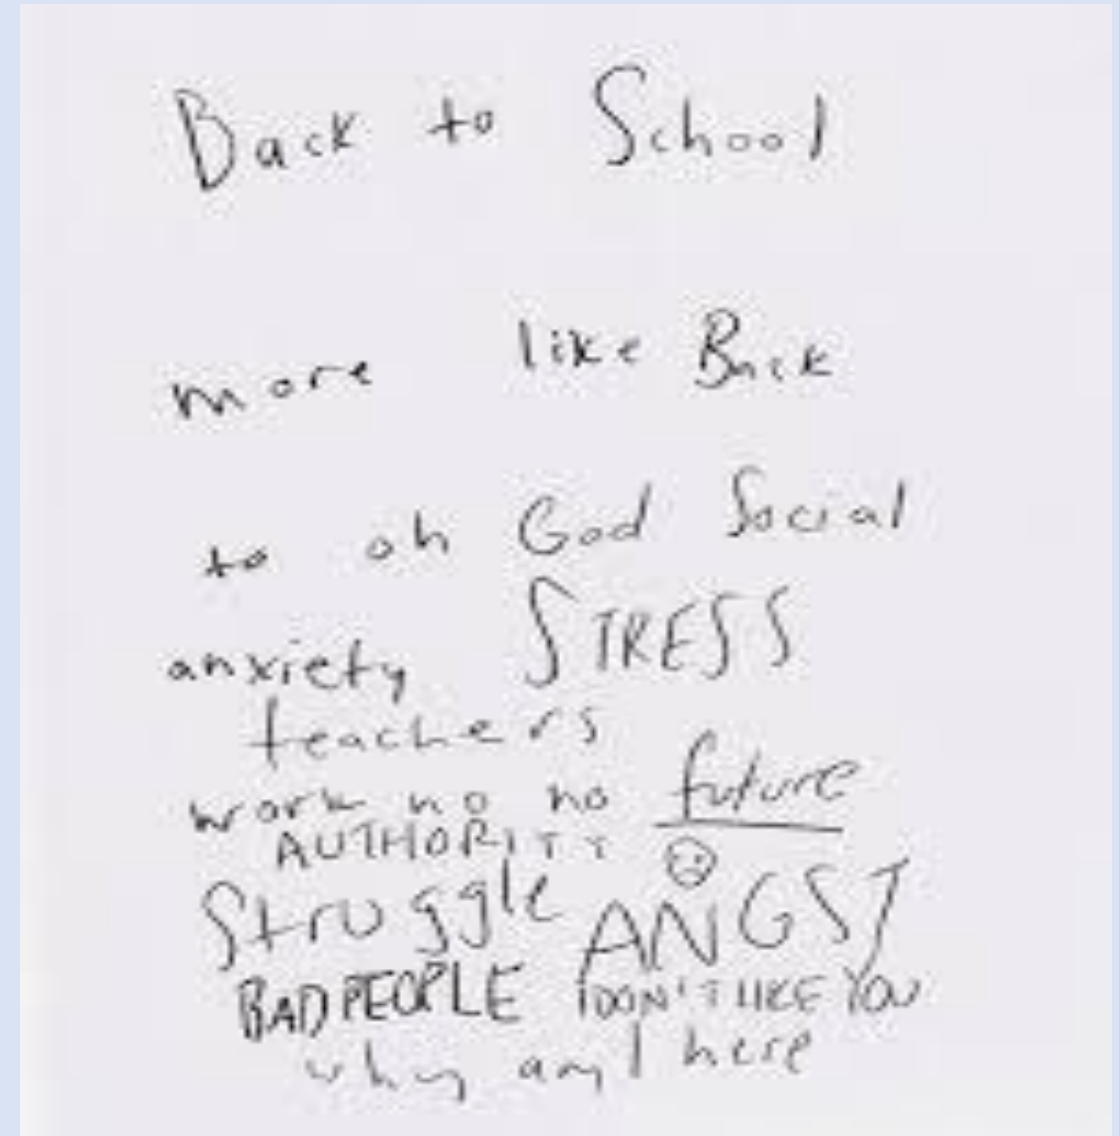 Back to School
more like Back
to oh God Social
anxiety STRESS
teachers
work no no future
AUTHORITY
Struggle ANGST
BAD PEOPLE I DON'T LIKE YOU
why am I here